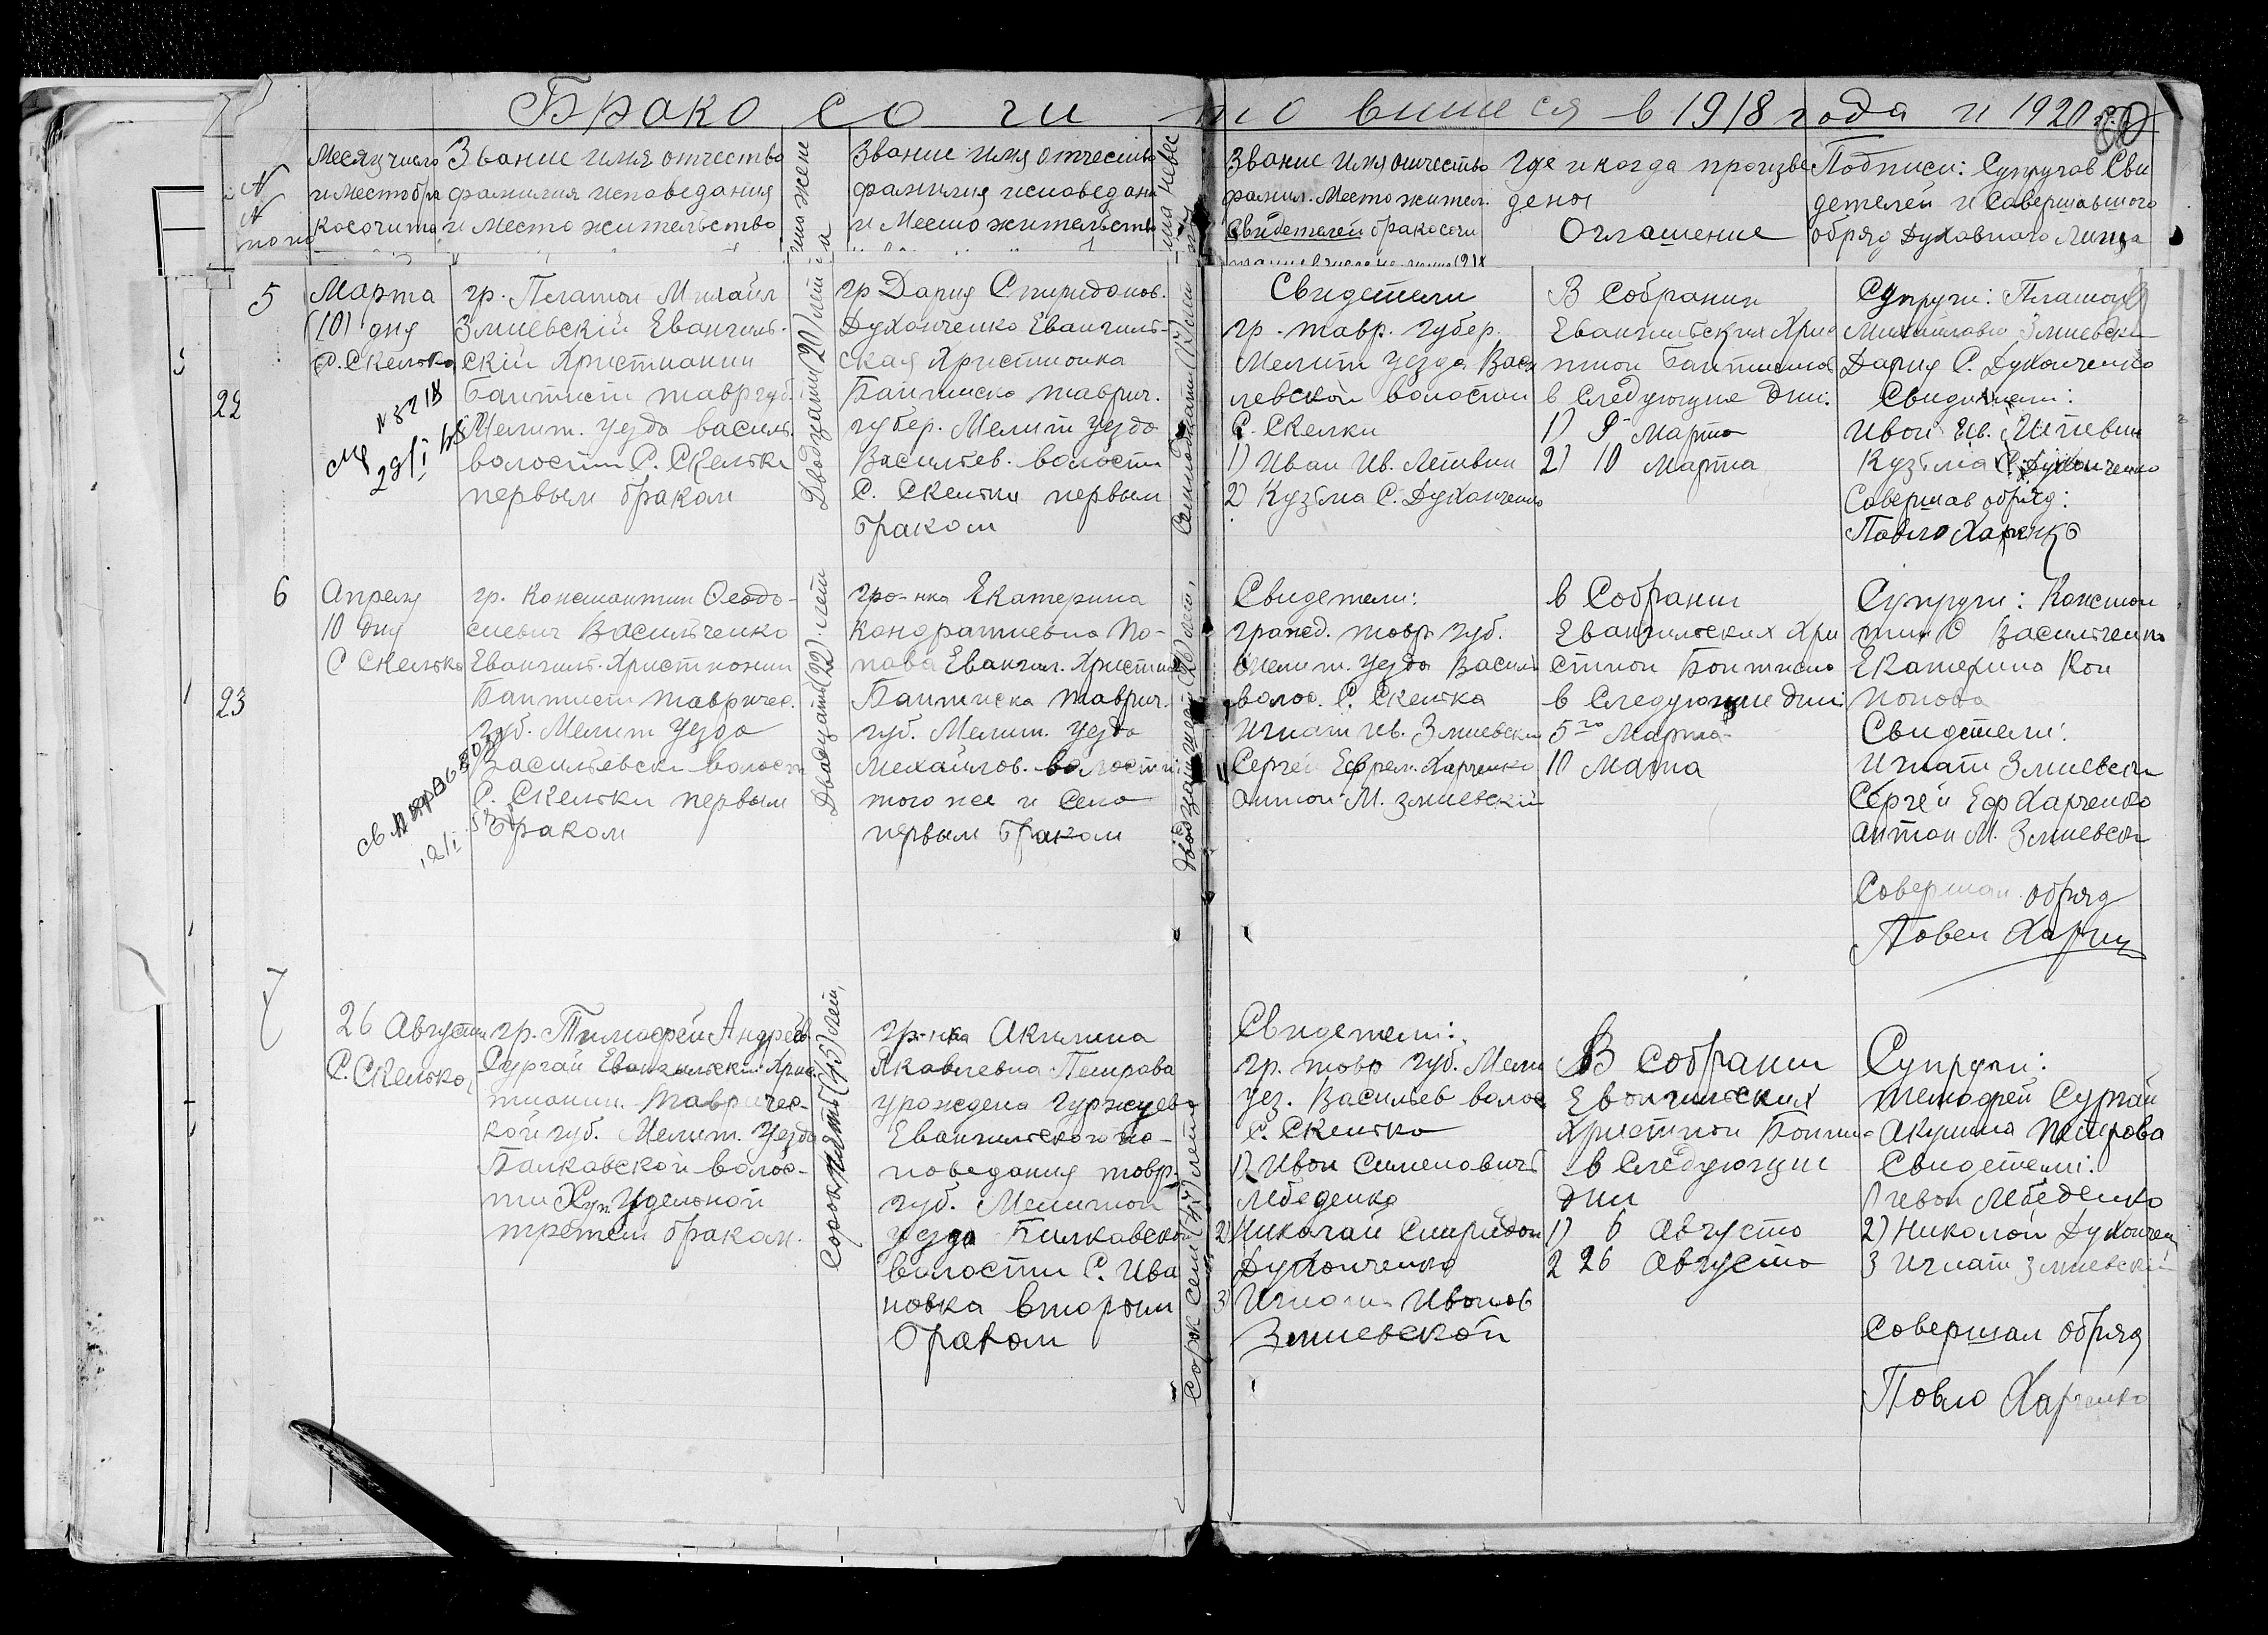 Брако со чи тавшиеся в 1918 года и 1920
Месяц число
и место бра
косочита
Звание имя отчество
фамилия исповедания
и место жительство
Звание имя отчество
фамилия исповедани
и место жительство
Звание имя отчество
фамил. Место жител.
Свидетелей бракосочи
Где и когда произве
дено
Оглашение
Подписи: Супругов Сви
детелей и Совершавшого
обряд Духовного Лица
5
22
Марта
(10) дня
С. Скелька
29/I
гр. Платон Михаил
Змиевскій Евангель-
скій Християнин
Баптист тавр губ.
Мелит. уезда василь.
волости С. Скельки
первым браком
Двадцать (20) лет
гр Дария Спиридонов.
Духонченко Евангель-
ская Християнка
Баптиска таврич.
губер. Мелит уезда
Васильев. волости
С. Скельки первым
браком
Свидетели
гр. тавр. губер.
Мелит уезда Васи
левской волости
С. Скелки
1) Иван Ив. Летвин
2) Кузьма С. Духонченко
В Собрании
Евангельских Хрис
тиан Баптистов
в следующие дни:
1) 9- Марта
2) 10 Марта
Супруги: Платон
Михайлович Змиевски
Дария С. Духонченко
Свидетели:
Иван Ив. Литвин
Кузьма С. Духонченко
Совершав обряд:
Павло Харченко
6
23
Апреля
10 дня
С Скелька
гр. Константин Феодо-
сиевич Васильченко
Евангель. Християнин
Баптист Тавричес.
Губ. Мелит уезда
Васильевски волости
С. Скельки первым
браком
Двадцать (22) лет
гра-нка Екатерина
Кондратиевна По-
пова Евангел. Християн
Баптиска таврич.
губ. Мелит. уезда
Михайлов. волости
того же и Села
первым браком
Свидетели:
гражд. тавр губ.
Мелит. уезда Василь
волос. С. Скелька
Игнат Ив. Змиевски
Сергей Ефрем. Харченко
Антон М. Змиевскій
в Собрании
Евангельских Хри
стиан Баптистов
в Следующие дни:
5го Марта
10 Марта
Супруги: Констан
тин Ф Васильченко
Екатерина Кон
Попова
Свидетели:
Игнат Змиевски
Сергей Ефр Харченко
Антон М. Змиевски
Совершал обряд
Павел Харчен
7
26 Августа
С. Скелька,
гр. Тимофей Андреев
Сургай Евангельски Хрис
тианин. Тавричес-
кой губ. Мелит. уезда
Балкавской волос-
ти Хут. Удельной
третьем браком.
Сорок пять (45) лет,
гр-нка Акилина
Яковлевна Петрова
урождена Гуржуева
Евангельского ис-
поведания тавр.
губ. Мелитоп
уезда Балкавской
волости С. Ива
новка вторым
браком
Сорок сем (47) лет
Свидетели:
гр. тавр губ. Мели
уез. Васильев волос
С. Скелька
1) Иван Сименович
Лебеденко
2) Николай Спиридон
Духонченко
3) Игнат Иванов
Змиевской
В Собрании
Евангильских
Християн Баптис
в Следующие
дни
1) 6 Августа
2 26 Августа
Супруги:
Тимофей Сургай
Акулина Петрова
Свидетели:
1) Иван Лебеденко
2) Николай Духончен
3 Игнат Змиевский
Совершал обряд
Павло Харченко